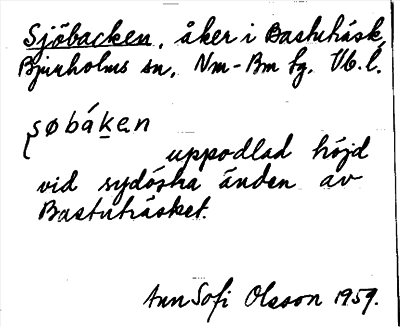 Sjöbacken, åker i Bastuträsk,
Bjurholms sn, Nm-Bm tg. Vb. l.
ʂøbák̠en
uppodlad höjd
vid sydöstra änden av
Bastuträsket.
Ann Sofi Olsson 1959.